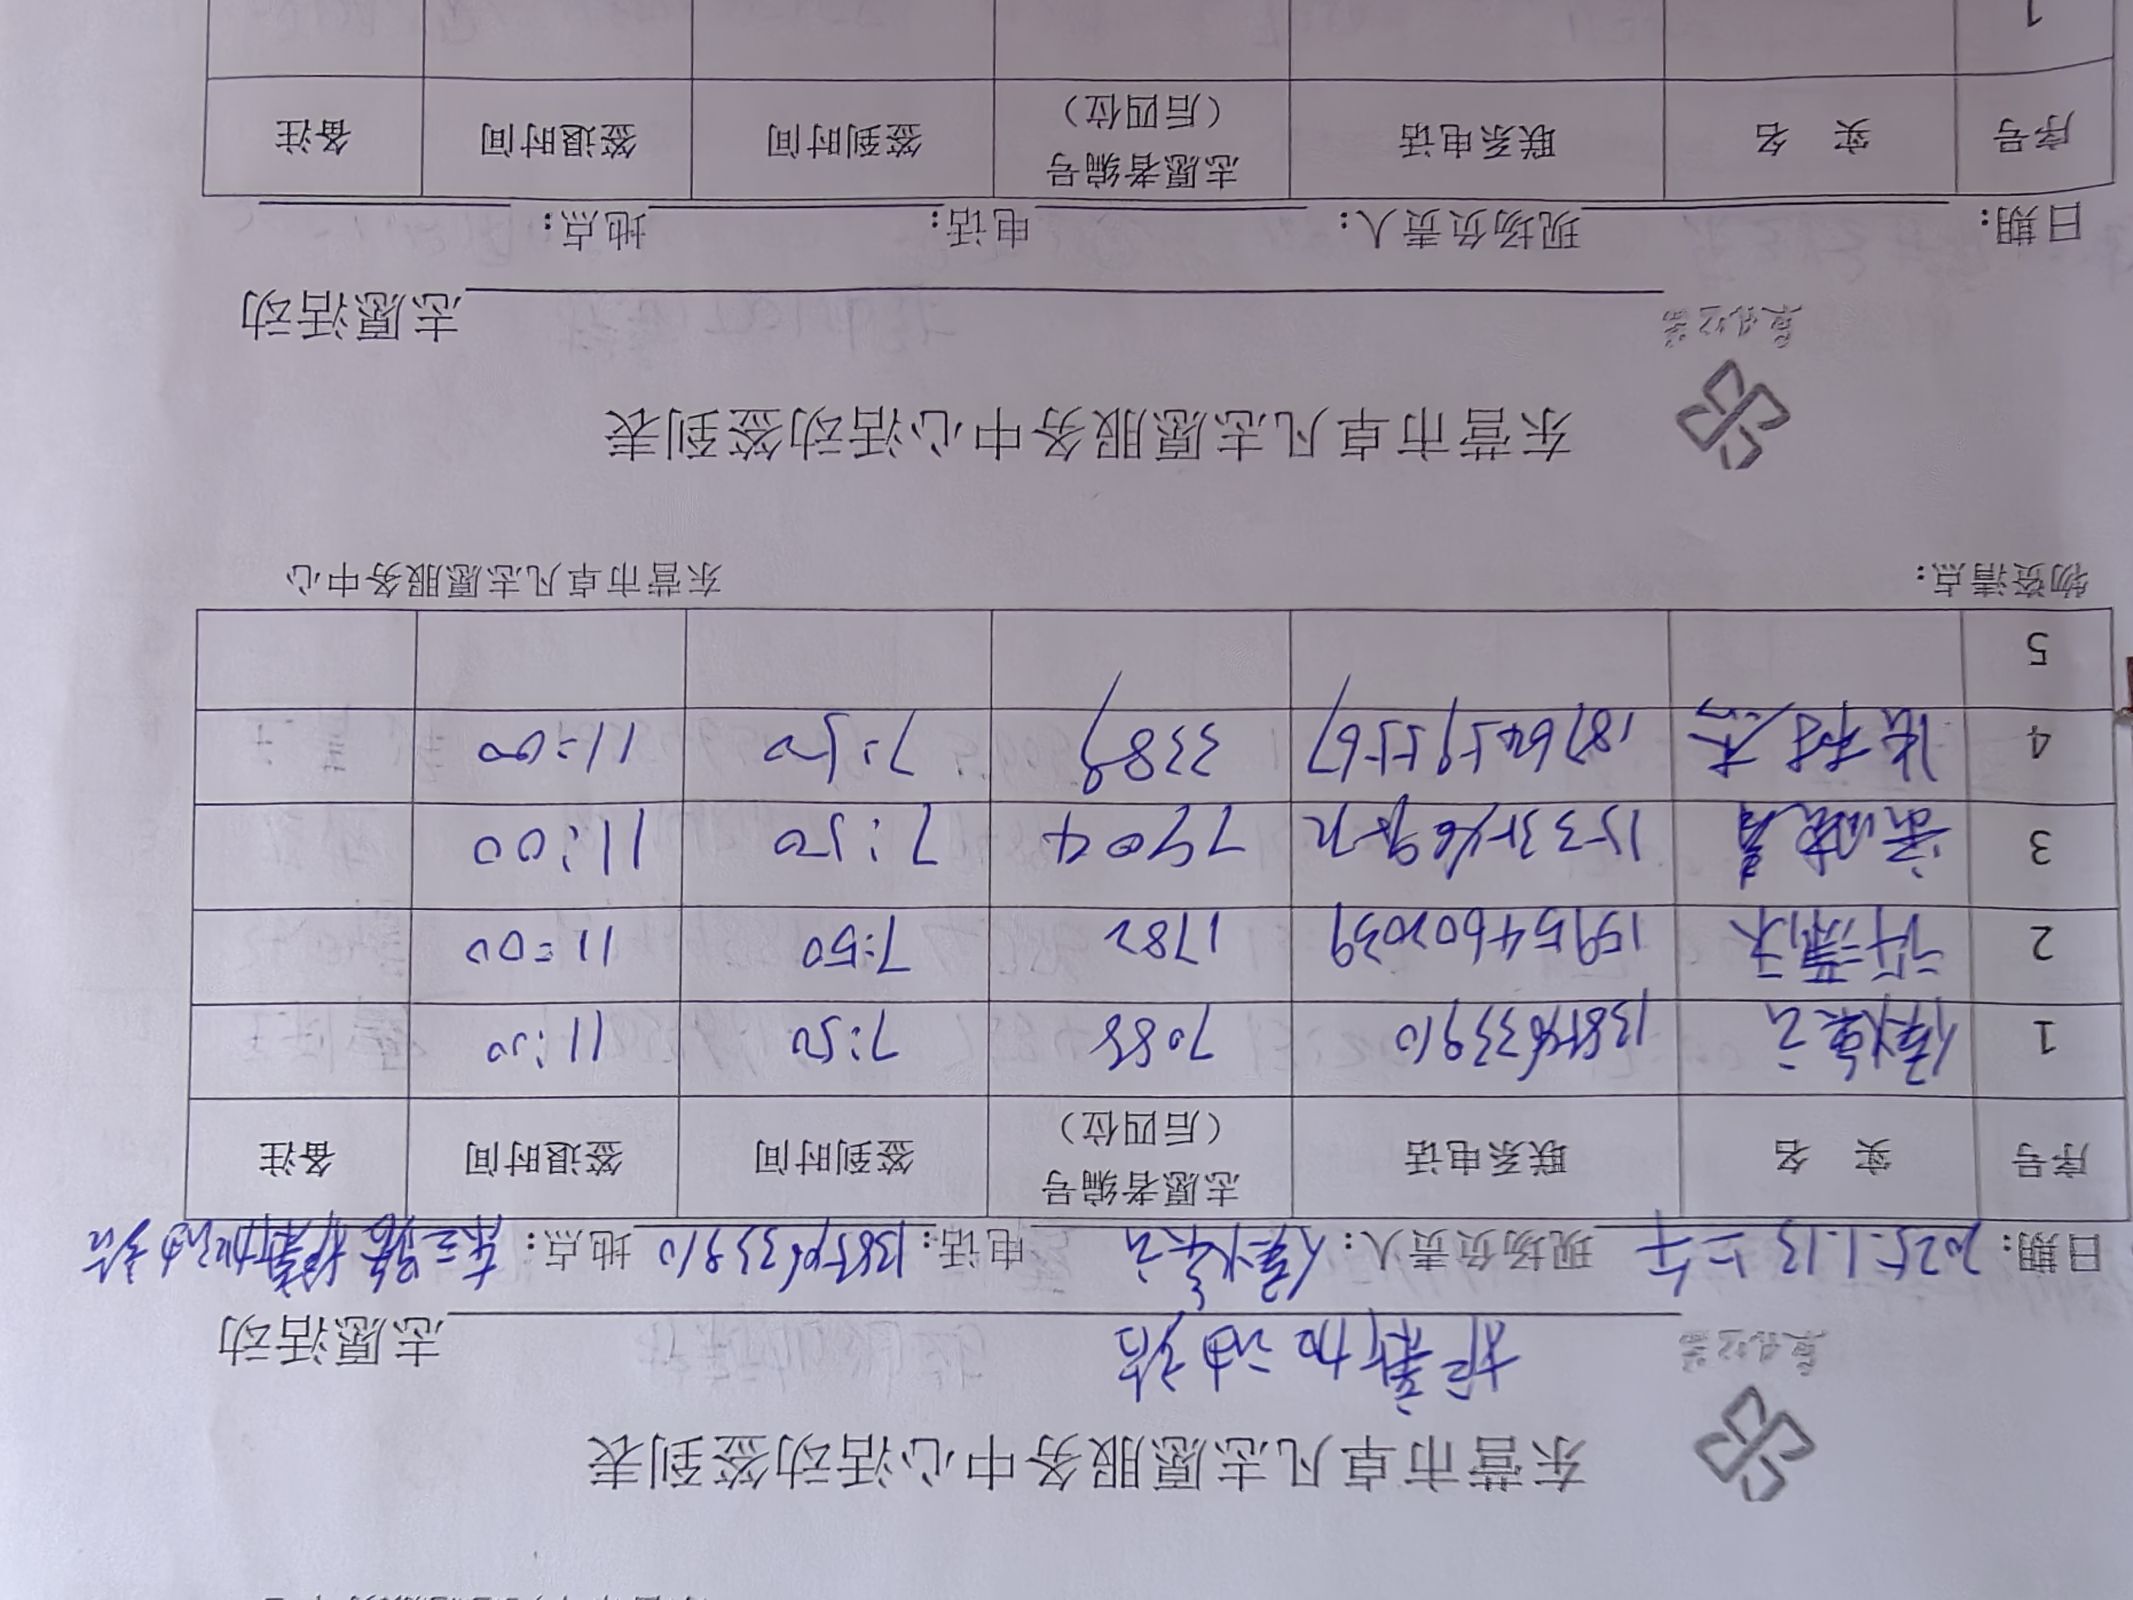 东营市卓凡志愿服务中心活动签到表
振新加油站 志愿活动
日期：2025.1.13上午 现场负责人： 电话：13854633910 地点：东三路振新加油站
序号 实 名 联系电话 志愿者编号（后四位） 签到时间 签退时间 备注
1 13854633910 7088 7:50 11:00
2 15954602039 1782 7:50 11:00
3 7904 7:50 11:00
4 18764595567 3389 7:50 11:00
5
物资清点： 东营市卓凡志愿服务中心
东营市卓凡志愿服务中心活动签到表
志愿活动
日期： 现场负责人： 电话： 地点：
序号 实 名 联系电话 志愿者编号（后四位） 签到时间 签退时间 备注
1